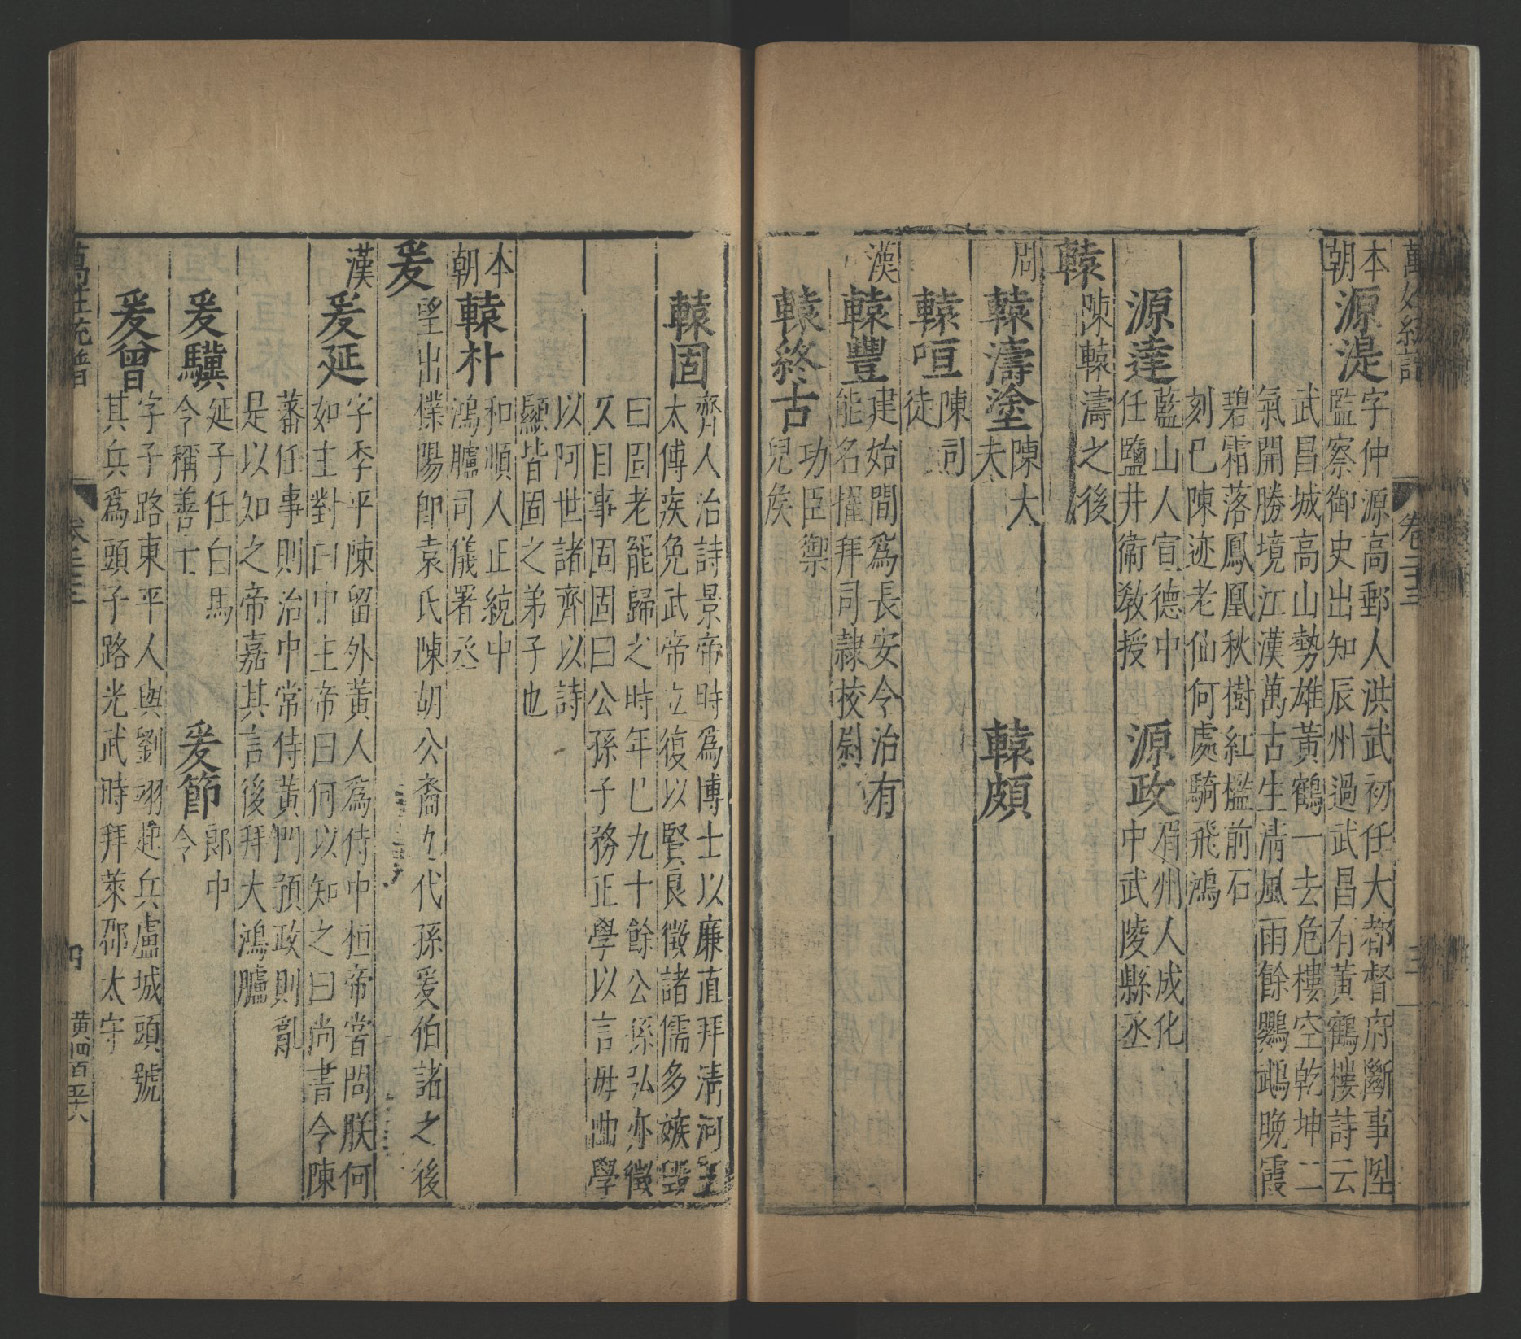 本朝
源湜
字仲源高郵人洪武初任大都督府斷事陞
監察御史出知辰州過武昌有黃鶴樓詩云
武昌城高山勢雄黃鶴一去危樓空乾坤二
氣開勝境江漢萬古生清風雨餘鸚鵡晚霞
碧霜落鳳凰秋樹紅檻前石
刻已陳迹老仙何處騎飛鴻
源達
藍山人宣德中
任鹽井衞敎授
源政
眉州人成化
中武陵縣丞
轅
陳轅濤之後
周
轅濤塗
陳大
夫
轅頗
轅咺
陳司
徒
漢
轅豐
建始間爲長安令治有
能名擢拜司隷挍尉
轅終古
功臣禦
兒矦
轅固
齊人治詩景帝時爲博士以廉直拜清河王
太傅疾免武帝立復以賢良徵諸儒多嫉毀
曰固老罷歸之時年已九十餘公孫弘亦徵
仄目事固固曰公孫子務正學以言毋曲學
以阿世諸齊以詩
顯皆固之弟子也
本朝
轅朴
和順人正統中
鴻臚司儀署丞
爰
望出濮陽卽袁氏陳胡公裔九代孫爰伯諸之後
漢
爰延
字季平陳留外黃人爲侍中桓帝嘗問朕何
如主對曰中主帝曰何以知之曰尚書令陳
蕃任事則治中常侍黃門預政則亂
是以如之帝嘉其言後拜大鴻臚
爰驥
延子任白馬
令稱善士
爰節
郎中
令
爰曾
字子路東平人與劉詡起兵盧城頭號
其兵爲頭子路光武時拜萊郡太守
萬姓統譜
卷二十三
三
四
黃四百五十八